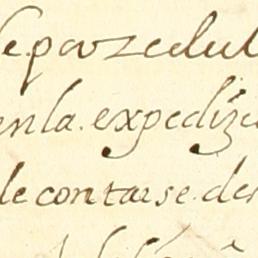 se.por zedul
en la. expediz
de contarse. des